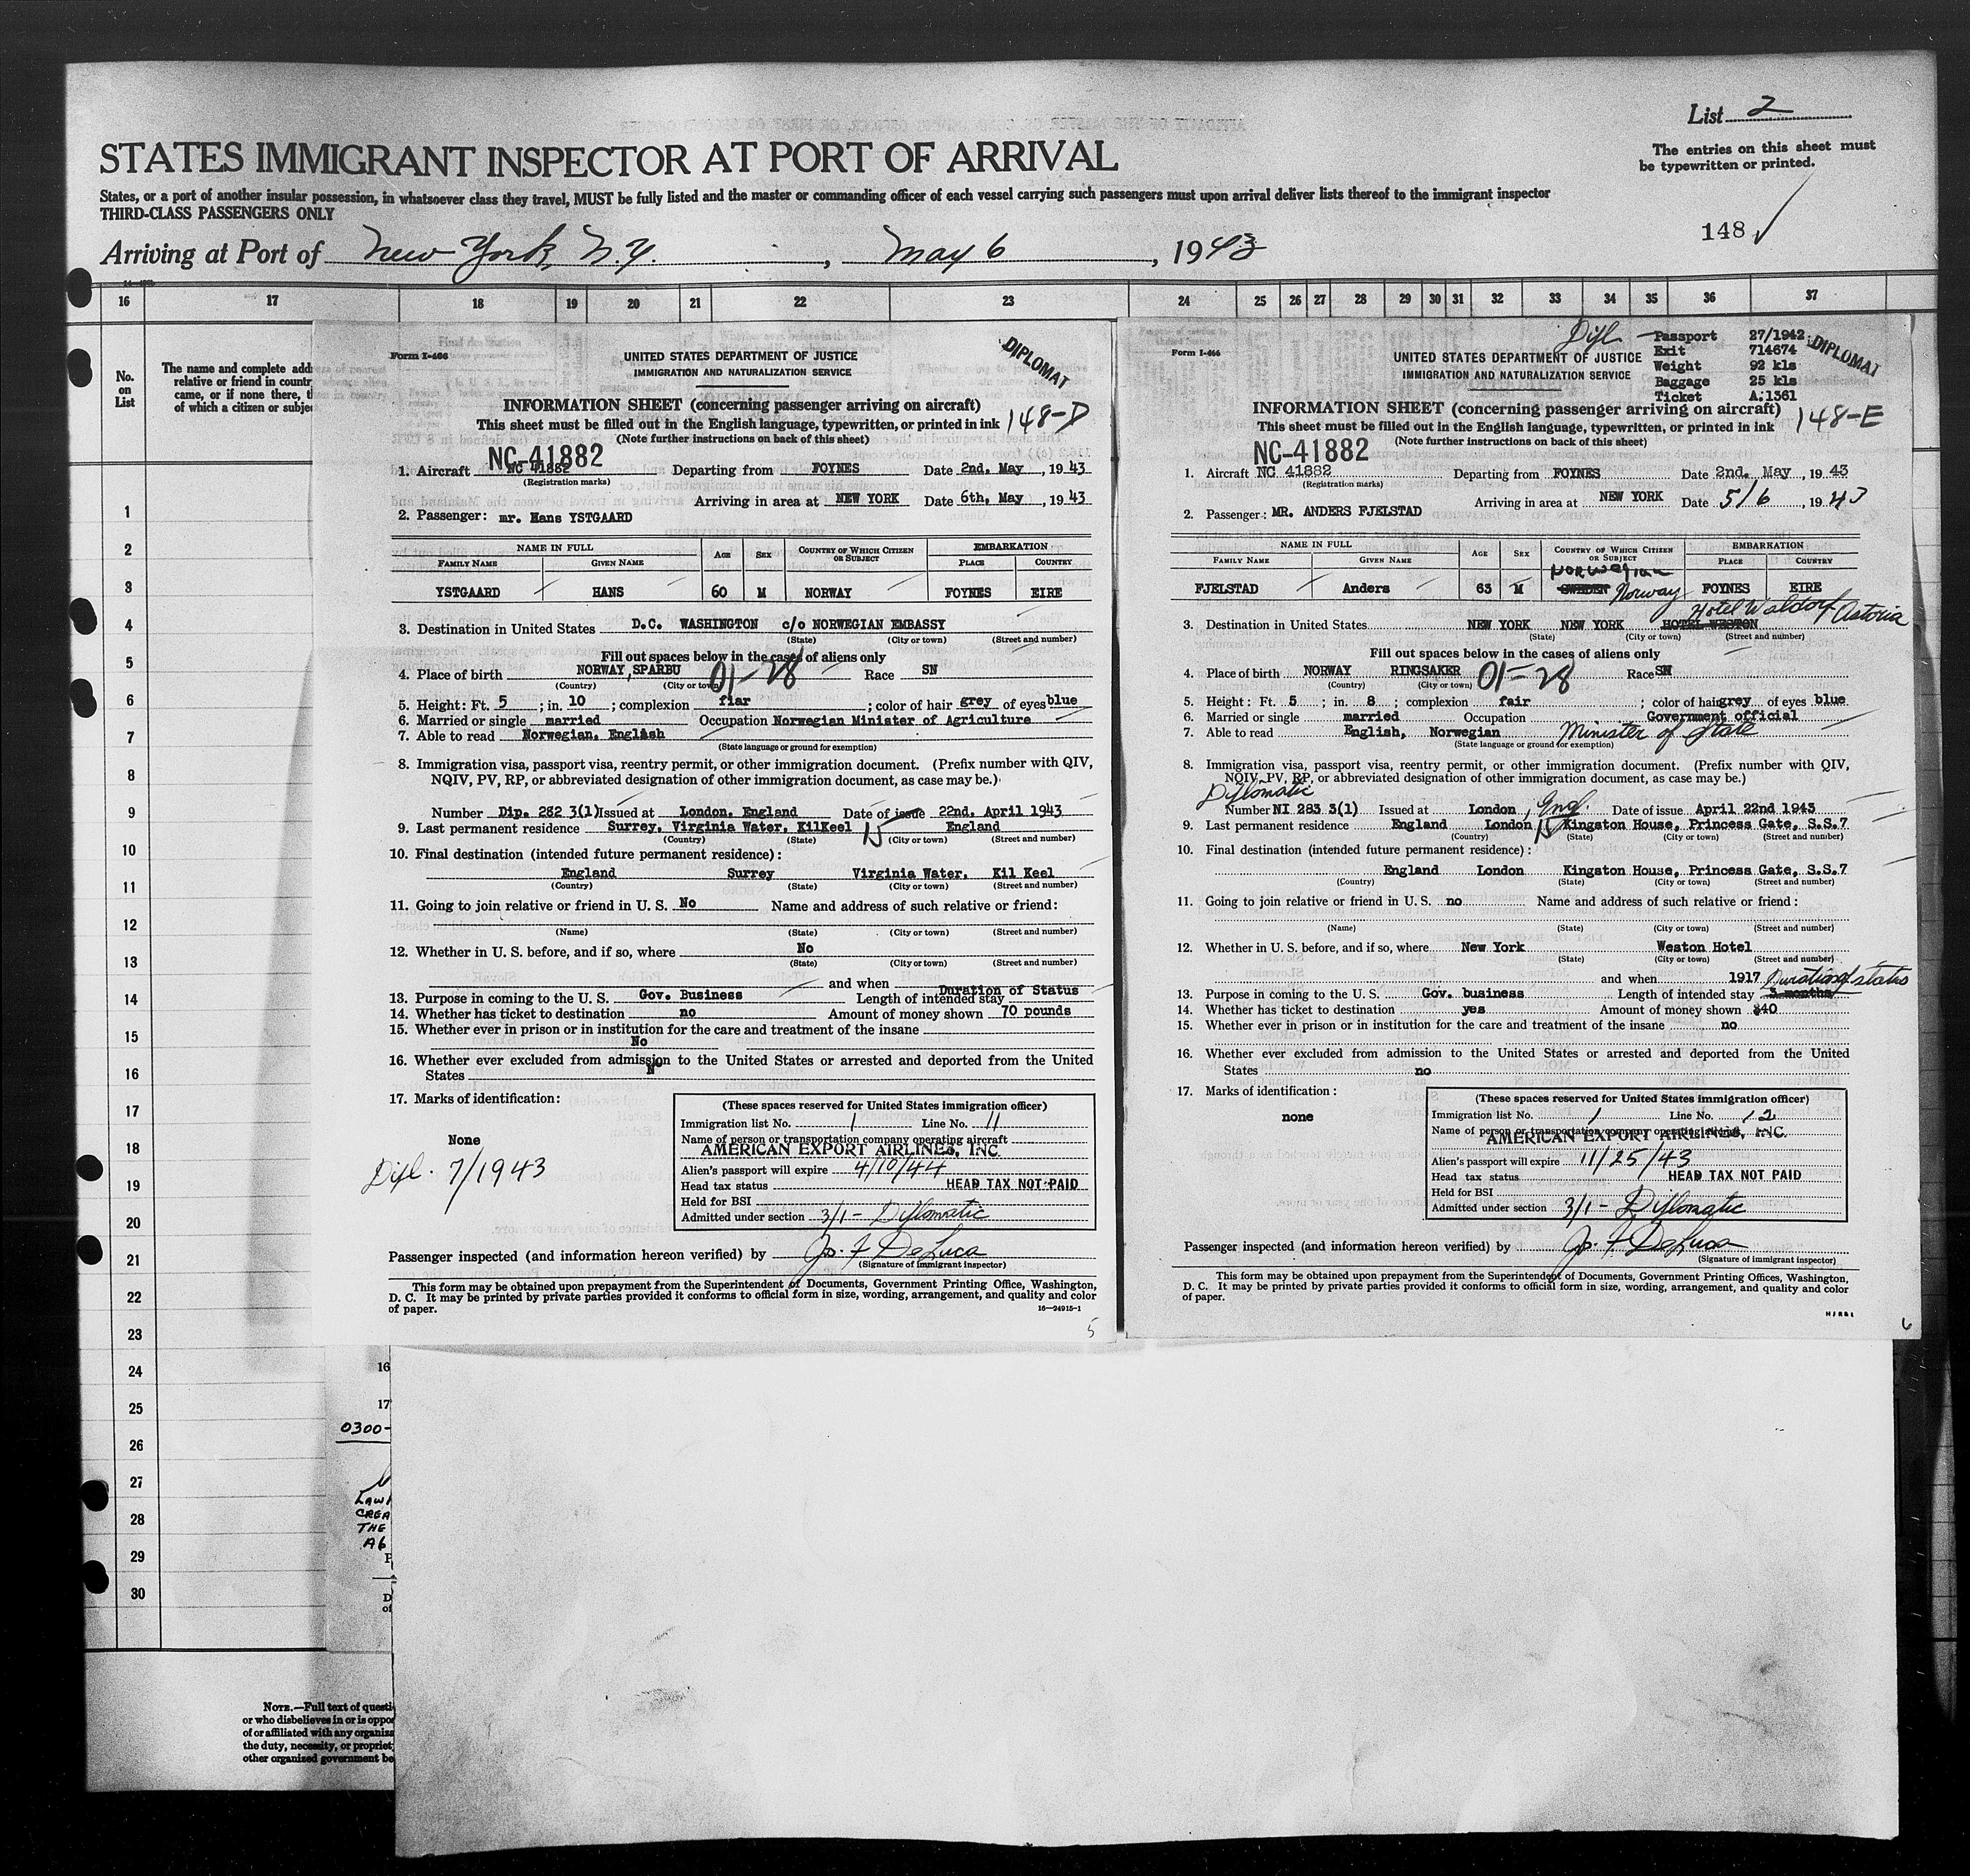 List 2
The entries on this sheet must
be typewritten or printed.
148
STATES IMMIGRANT INSPECTOR AT PORT OF ARRIVAL
States, or a port of another insular possession, in whatsoever class they travel, MUST be fully listed and the master or commanding officer of each vessel carrying such passengers must upon arrival deliver lists thereof to the immigrant inspector
THIRD-CLASS PASSENGERS ONLY
Arriving at Port of New York, N.Y. , May 6 , 1943
16 17 18 19 20 21 22 23 24 25 26 27 28 29 30 31 32 33 34 35 36 37
No.
on
List
The name and complete add
relative or friend in countr
came, or if none there, t
of which a citizen or subje
1
2
3
4
5
6
7
8
9
10
11
12
13
14
15
16
17
18
19
20
21
22
23
24
25
26
27
28
29
30
Form I-466
UNITED STATES DEPARTMENT OF JUSTICE
IMMIGRATION AND NATURALIZATION SERVICE
DIPLOMAT
INFORMATION SHEET (concerning passenger arriving on aircraft)
This sheet must be filled out in the English language, typewritten, or printed in ink 148-D
(Note further instructions on back of this sheet)
NC-41882
1. Aircraft NC 41882 Departing from FOYNES Date 2nd. May , 1943
(Registration marks)
Arriving in area at NEW YORK Date 6th. May , 1943
2. Passenger: mr. Hans YSTGAARD
NAME IN FULL AGE SEX COUNTRY OF WHICH CITIZEN OR SUBJECT EMBARKATION
FAMILY NAME GIVEN NAME PLACE COUNTRY
YSTGAARD HANS 60 M NORWAY FOYNES EIRE
3. Destination in United States D.C. WASHINGTON c/o NORWEGIAN EMBASSY
(State) (City or town) (Street and number)
Fill out spaces below in the cases of aliens only
4. Place of birth NORWAY, SPARBU 01-28 Race SN
(Country) (City or town)
5. Height: Ft. 5 ; in. 10 ; complexion fiar ; color of hair grey of eyes blue
6. Married or single married Occupation Norwegian Minister of Agriculture
7. Able to read Norwegian. English
(State language or ground for exemption)
8. Immigration visa, passport visa, reentry permit, or other immigration document. (Prefix number with QIV,
NQIV, PV, RP, or abbreviated designation of other immigration document, as case may be.)
Number Dip. 282 3(1) Issued at London. England Date of issue 22nd. April 1943
9. Last permanent residence Surrey. Virginia Water. KilKeel England
(Country) (State) (City or town) (Street and number)
10. Final destination (intended future permanent residence):
England Surrey Virginia Water. Kil Keel
(Country) (State) (City or town) (Street and number)
11. Going to join relative or friend in U. S. No Name and address of such relative or friend:
(Name) (State) (City or town) (Street and number)
12. Whether in U. S. before, and if so, where No
(State) (City or town) (Street and number)
and when
13. Purpose in coming to the U. S. Gov. Business Length of intended stay Duration of Status
14. Whether has ticket to destination no Amount of money shown 70 pounds
15. Whether ever in prison or in institution for the care and treatment of the insane
No
16. Whether ever excluded from admission to the United States or arrested and deported from the United
States No
17. Marks of identification:
None
Dipl. 7/1943
(These spaces reserved for United States immigration officer)
Immigration list No. 1 Line No. 11
Name of person or transportation company operating aircraft
AMERICAN EXPORT AIRLINES, INC.
Alien's passport will expire 4/10/44
Head tax status HEAD TAX NOT PAID
Held for BSI
Admitted under section 3/1 - Diplomatic
Passenger inspected (and information hereon verified) by Jos. F DeLuca
(Signature of immigrant inspector)
This form may be obtained upon prepayment from the Superintendent of Documents, Government Printing Office, Washington,
D. C. It may be printed by private parties provided it conforms to official form in size, wording, arrangement, and quality and color
of paper.
16—24915-1
5
Form I-466
Dipl Passport 27/1942
Exit 714674
Weight 92 kls
Baggage 25 kls
Ticket A:1361
DIPLOMAT
UNITED STATES DEPARTMENT OF JUSTICE
IMMIGRATION AND NATURALIZATION SERVICE
INFORMATION SHEET (concerning passenger arriving on aircraft)
This sheet must be filled out in the English language, typewritten, or printed in ink 148-E
(Note further instructions on back of this sheet)
NC-41882
1. Aircraft NC 41882 Departing from FOYNES Date 2nd. May , 1943
(Registration marks)
Arriving in area at NEW YORK Date 5/6 , 1943
2. Passenger: MR. ANDERS FJELSTAD
NAME IN FULL AGE SEX COUNTRY OF WHICH CITIZEN OR SUBJECT EMBARKATION
FAMILY NAME GIVEN NAME PLACE COUNTRY
Norwegian
FJELSTAD Anders 63 M SWEDEN Norway FOYNES EIRE
Hotel Waldorf Astoria
3. Destination in United States NEW YORK NEW YORK HOTEL WESTON
(State) (City or town) (Street and number)
Fill out spaces below in the cases of aliens only
4. Place of birth NORWAY RINGSAKER 01-28 Race SN
(Country) (City or town)
5. Height: Ft. 5 ; in. 8 ; complexion fair ; color of hair grey of eyes blue
6. Married or single married Occupation Government official
7. Able to read English, Norwegian Minister of State
(State language or ground for exemption)
8. Immigration visa, passport visa, reentry permit, or other immigration document. (Prefix number with QIV,
NQIV, PV, RP, or abbreviated designation of other immigration document, as case may be.)
Diplomatic
Number NI 283 3(1) Issued at London , Eng. Date of issue April 22nd 1943
9. Last permanent residence England London Kingston House, Princess Gate, S.S.7
(Country) (State) (City or town) (Street and number)
10. Final destination (intended future permanent residence):
England London Kingston House, Princess Gate, S.S.7
(Country) (State) (City or town) (Street and number)
11. Going to join relative or friend in U. S. no Name and address of such relative or friend:
(Name) (State) (City or town) (Street and number)
12. Whether in U. S. before, and if so, where New York Weston Hotel
(State) (City or town) (Street and number)
and when 1917 Duration of status
13. Purpose in coming to the U. S. Gov. business Length of intended stay 3 months
14. Whether has ticket to destination yes Amount of money shown $40
15. Whether ever in prison or in institution for the care and treatment of the insane no
16. Whether ever excluded from admission to the United States or arrested and deported from the United
States no
17. Marks of identification:
none
(These spaces reserved for United States immigration officer)
Immigration list No. 1 Line No. 12
Name of person or transportation company operating aircraft
AMERICAN EXPORT AIRLINES, INC.
Alien's passport will expire 11/25/43
Head tax status HEAD TAX NOT PAID
Held for BSI
Admitted under section 3/1 - Diplomatic
Passenger inspected (and information hereon verified) by Jos. F. DeLuca
(Signature of immigrant inspector)
This form may be obtained upon prepayment from the Superintendent of Documents, Government Printing Offices, Washington,
D. C. It may be printed by private parties provided it conforms to official form in size, wording, arrangement, and quality and color
of paper.
6
16
17
0300-
LAWI
CREA
THE
A6
P
D
of
NOTE.—Full text of questi
or who disbelieves in or is oppo
of or affiliated with any organiza
the duty, necessity, or propriet
other organized government be